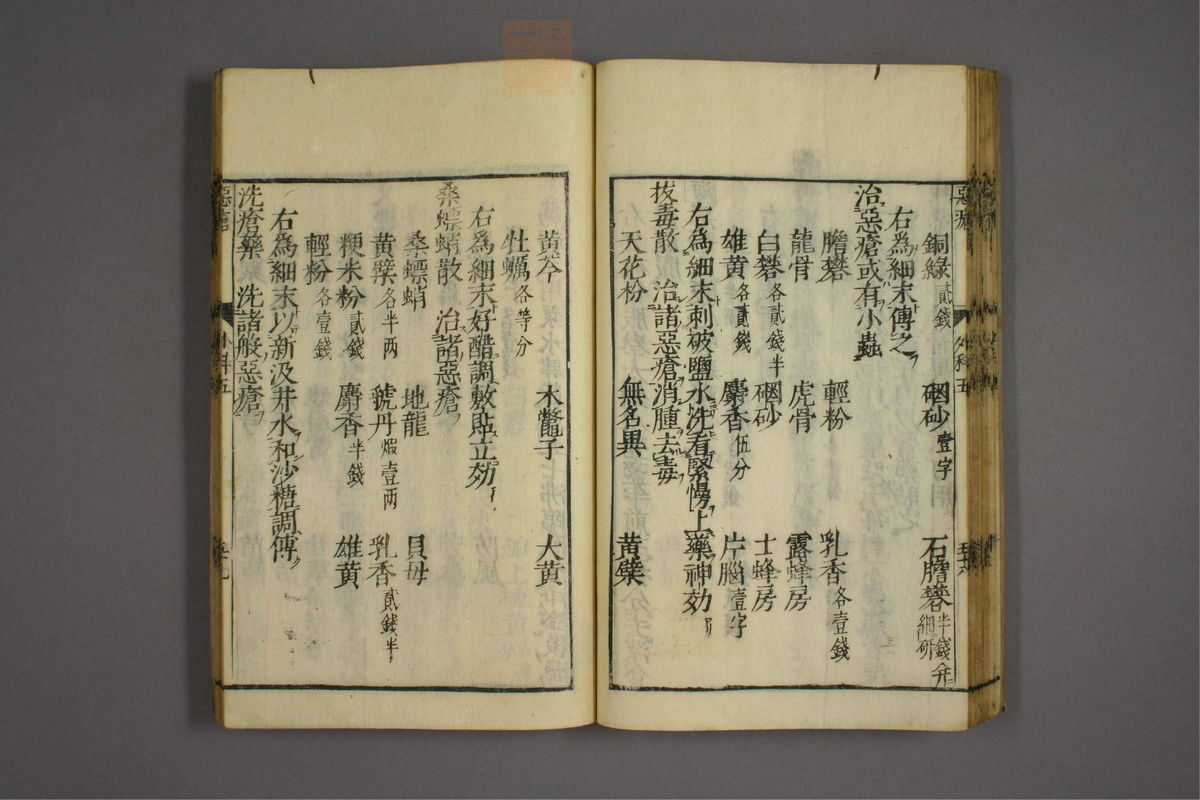 惡瘡 外科五
銅綠貳錢 硇砂壹字 石膽礬半錢并細研
右為細末傅之
治惡瘡或有小蟲
膽礬 輕粉 乳香各壹錢
龍骨 虎骨 露蜂房
白礬各貳錢半 硇砂 土蜂房
雄黃各貳錢 麝香伍分 片腦壹字
右為細末刺破鹽水洗看緊慢上藥神効
拔毒散 治諸惡瘡消腫去毒
天花粉 無名異 黃蘗
黃芩 木鱉子 大黃
牡蠣各等分
右為細末好醋調敷貼立効
桑螵蛸散 治諸惡瘡
桑螵蛸 地龍 貝母
黃蘗各半兩 虢丹煅壹兩 乳香貳錢半
粳米粉貳錢 麝香半錢 雄黃
輕粉各壹錢
右為細末以新汲井水和沙糖調傅
洗瘡藥 洗諸般惡瘡
惡瘡 外科五